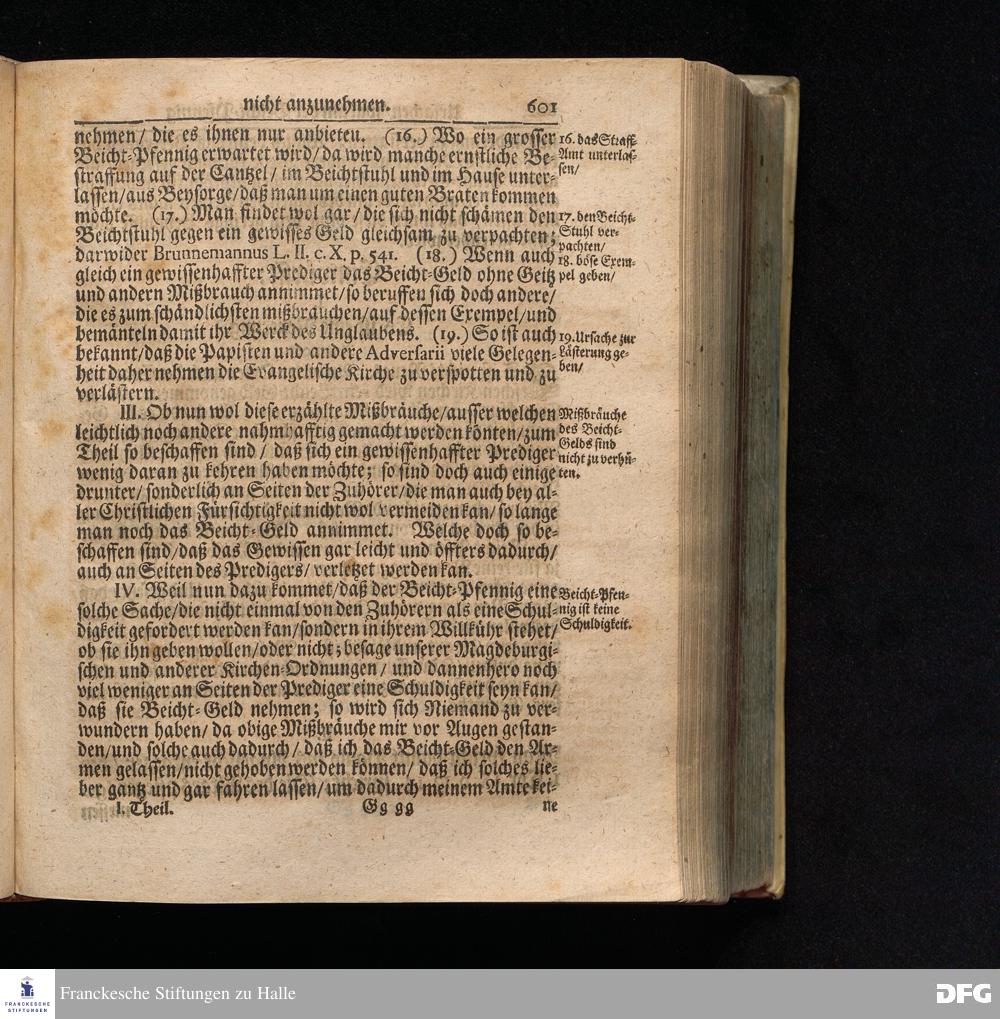 nicht anzunehmen. 601
nehmen/ die es ihnen nur anbieten. (16.) Wo ein grosser
Beicht-Pfennig erwartet wird/ da wird manche ernstliche Be-
straffung auf der Cantzel/ im Beichtstuhl und im Hause unter-
lassen/ aus Beysorge/ daß man um einen guten Braten kommen
möchte. (17.) Man findet wol gar/ die sich nicht schämen den
Beichtstuhl gegen ein gewisses Geld gleichsam zu verpachten;
darwider Brunnemannus L. II. c. X. p. 541. (18.) Wenn auch
gleich ein gewissenhaffter Prediger das Beicht-Geld ohne Geitz
und andern Mißbrauch annimmet/ so beruffen sich doch andere/
die es zum schändlichsten mißbrauchen/ auf dessen Exempel/ und
bemänteln damit ihr Werck des Unglaubens. (19.) So ist auch
bekannt/ daß die Papisten und andere Adversarii viele Gelegen-
heit daher nehmen die Evangelische Kirche zu verspotten und zu
verlästern.
III. Ob nun wol diese erzählte Mißbräuche/ ausser welchen
leichtlich noch andere nahmhafftig gemacht werden könten/ zum
Theil so beschaffen sind/ daß sich ein gewissenhaffter Prediger
wenig daran zu kehren haben möchte; so sind doch auch einige
drunter/ sonderlich an Seiten der Zuhörer/ die man auch bey al-
ler Christlichen Fürsichtigkeit nicht wol vermeiden kan/ so lange
man noch das Beicht-Geld annimmet. Welche doch so be-
schaffen sind/ daß das Gewissen gar leicht und öffters dadurch/
auch an Seiten des Predigers/ verletzet werden kan.
IV. Weil nun dazu kommet/ daß der Beicht-Pfennig eine
solche Sache/ die nicht einmal von den Zuhörern als eine Schul-
digkeit gefordert werden kan/ sondern in ihrem Willkühr stehet/
ob sie ihn geben wollen/ oder nicht; besage unserer Magdeburgi-
schen und anderer Kirchen-Ordnungen/ und dannenhero noch
viel weniger an Seiten der Prediger eine Schuldigkeit seyn kan/
daß sie Beicht-Geld nehmen; so wird sich Niemand zu ver-
wundern haben/ da obige Mißbräuche mir vor Augen gestan-
den/ und solche auch dadurch/ daß ich das Beicht-Geld den Ar-
men gelassen/ nicht gehoben werden können/ daß ich solches lie-
ber gantz und gar fahren lassen/ um dadurch meinem Amte kei-
I. Theil. Gg gg ne
16. das Straff-
Amt unterlas-
sen/
17. den Beicht-
Stuhl ver-
pachten/
18. böse Exem-
pel geben/
19. Ursache zur
Lästerung ge-
ben/
Mißbräuche
des Beicht-
Gelds sind
nicht zu verhü-
ten.
Beicht-Pfen-
nig ist keine
Schuldigkeit.
FRANCKESCHE
STIFTUNGEN
Franckesche Stiftungen zu Halle
DFG